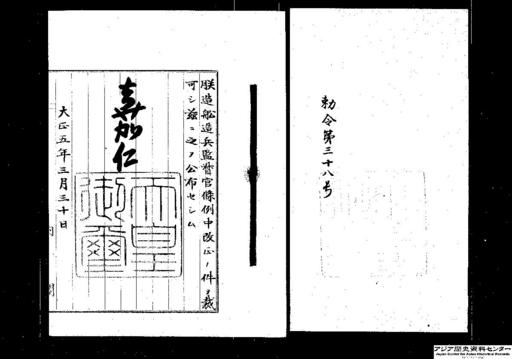 勅令第三十八号
朕造船造兵監督官條例中改正ノ件ヲ裁
可シ茲ニ之ヲ公布セシム
嘉仁
天皇
御璽
大正五年三月三十日
アジア歴史資料センター
Japan Center for Asian Historical Records